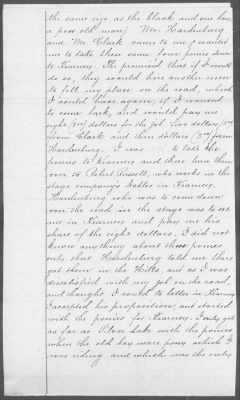 the same size as the black and one bay,
a poor old mare; Mr. Hardenburg
and Mr. Clark came to me & wanted
me to take these same four ponies down
to Kearney. The promised that if I would
do so, they would hire another man
to fill my place on the road, which
I could have again, if I wanted
to come back, and would pay me
eight dollars for the job five dollars
from Clark and three dollars from
Hardenburg. I was to take the
ponies to Kearney and there turn them
over to Robert Russell, who works in the
stage company's stables in Kearney.
Hardenburg who was to come down
on the road over the stage was to see
me in Kearney and pay me his
share of the eight dollars. I did not
know anything about these ponies
only that Hardenburg told me they
got them in the Hills, and as I was
dissatisfied with my job on the road,
and thought I could to better in Kearney
I accepted his proposition, and started
with the ponies for Kearney. I only got
as far as Silver Lake with the ponies
when the old bay mare pony which I
was riding and which was the only